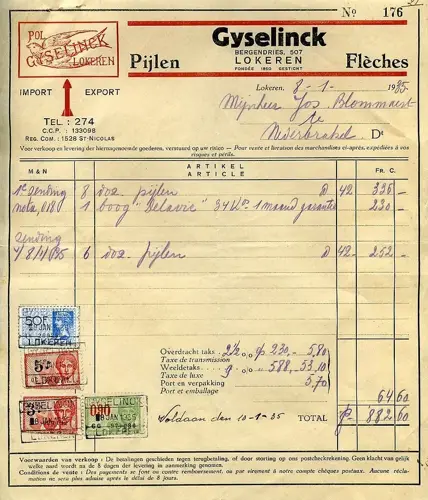 Nº 176
POL
GYSELINCK
LOKEREN
Gyselinck
BERGENDRIES, 507
LOKEREN
FONDÉE 1850 GESTICHT
Pijlen
Flèches
IMPORT EXPORT
TEL: 274
C.C.P.: 133098
REG. COM.: 1528 ST-NICOLAS
Lokeren, 8-1-1935
Mijnheer Jos Blommaert
te
Nederbrakel Dt
Voor verkoop en levering der hiernagenoemde goederen, verstuurd op uw risico - Pour vente et livraison des marchandises ci-après, expédiées à vos
risques et périls.
M&N ARTIKEL ARTICLE FR. C.
1e zending 8 doz pijlen à 42 336 -
nota, 018 1 boog "Delavic" 34 Ko 1 maand garantie 230 -
zending
4/8/1/35 6 doz. pijlen à 42 - 252 -
50F
LOKEREN
5F
3F
GYSELINCK
LOKEREN
Overdracht taks
Taxe de transmission
2½ % 230.- 5,80
Weeldetaks
Taxe de luxe
9 - 588, 53,10
Port en verpakking
Port et emballage
5,70
64 60
Voldaan den 10-1-35 TOTAL fr. 882 60
Voorwaarden van verkoop: De betalingen geschieden tegen terugbetaling, of door storting op ons postcheckrekening. Geen klacht van gelijk
welke aard wordt na de 8 dagen der levering in aanmerking genomen.
Conditions de vente: Des payements se font ou contre remboursement, ou par virement à notre compte chèques postaux. Aucune récla-
mation ne sera plus admise après le délai de 8 jours.